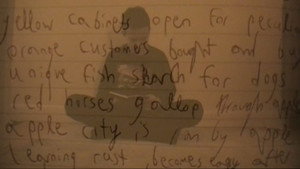 yellow cabinets open for peculia
orange customers bought and bu
unique fish search for dogs
red horses gallop through app
apple city is by apple
learning rust becomes easy after